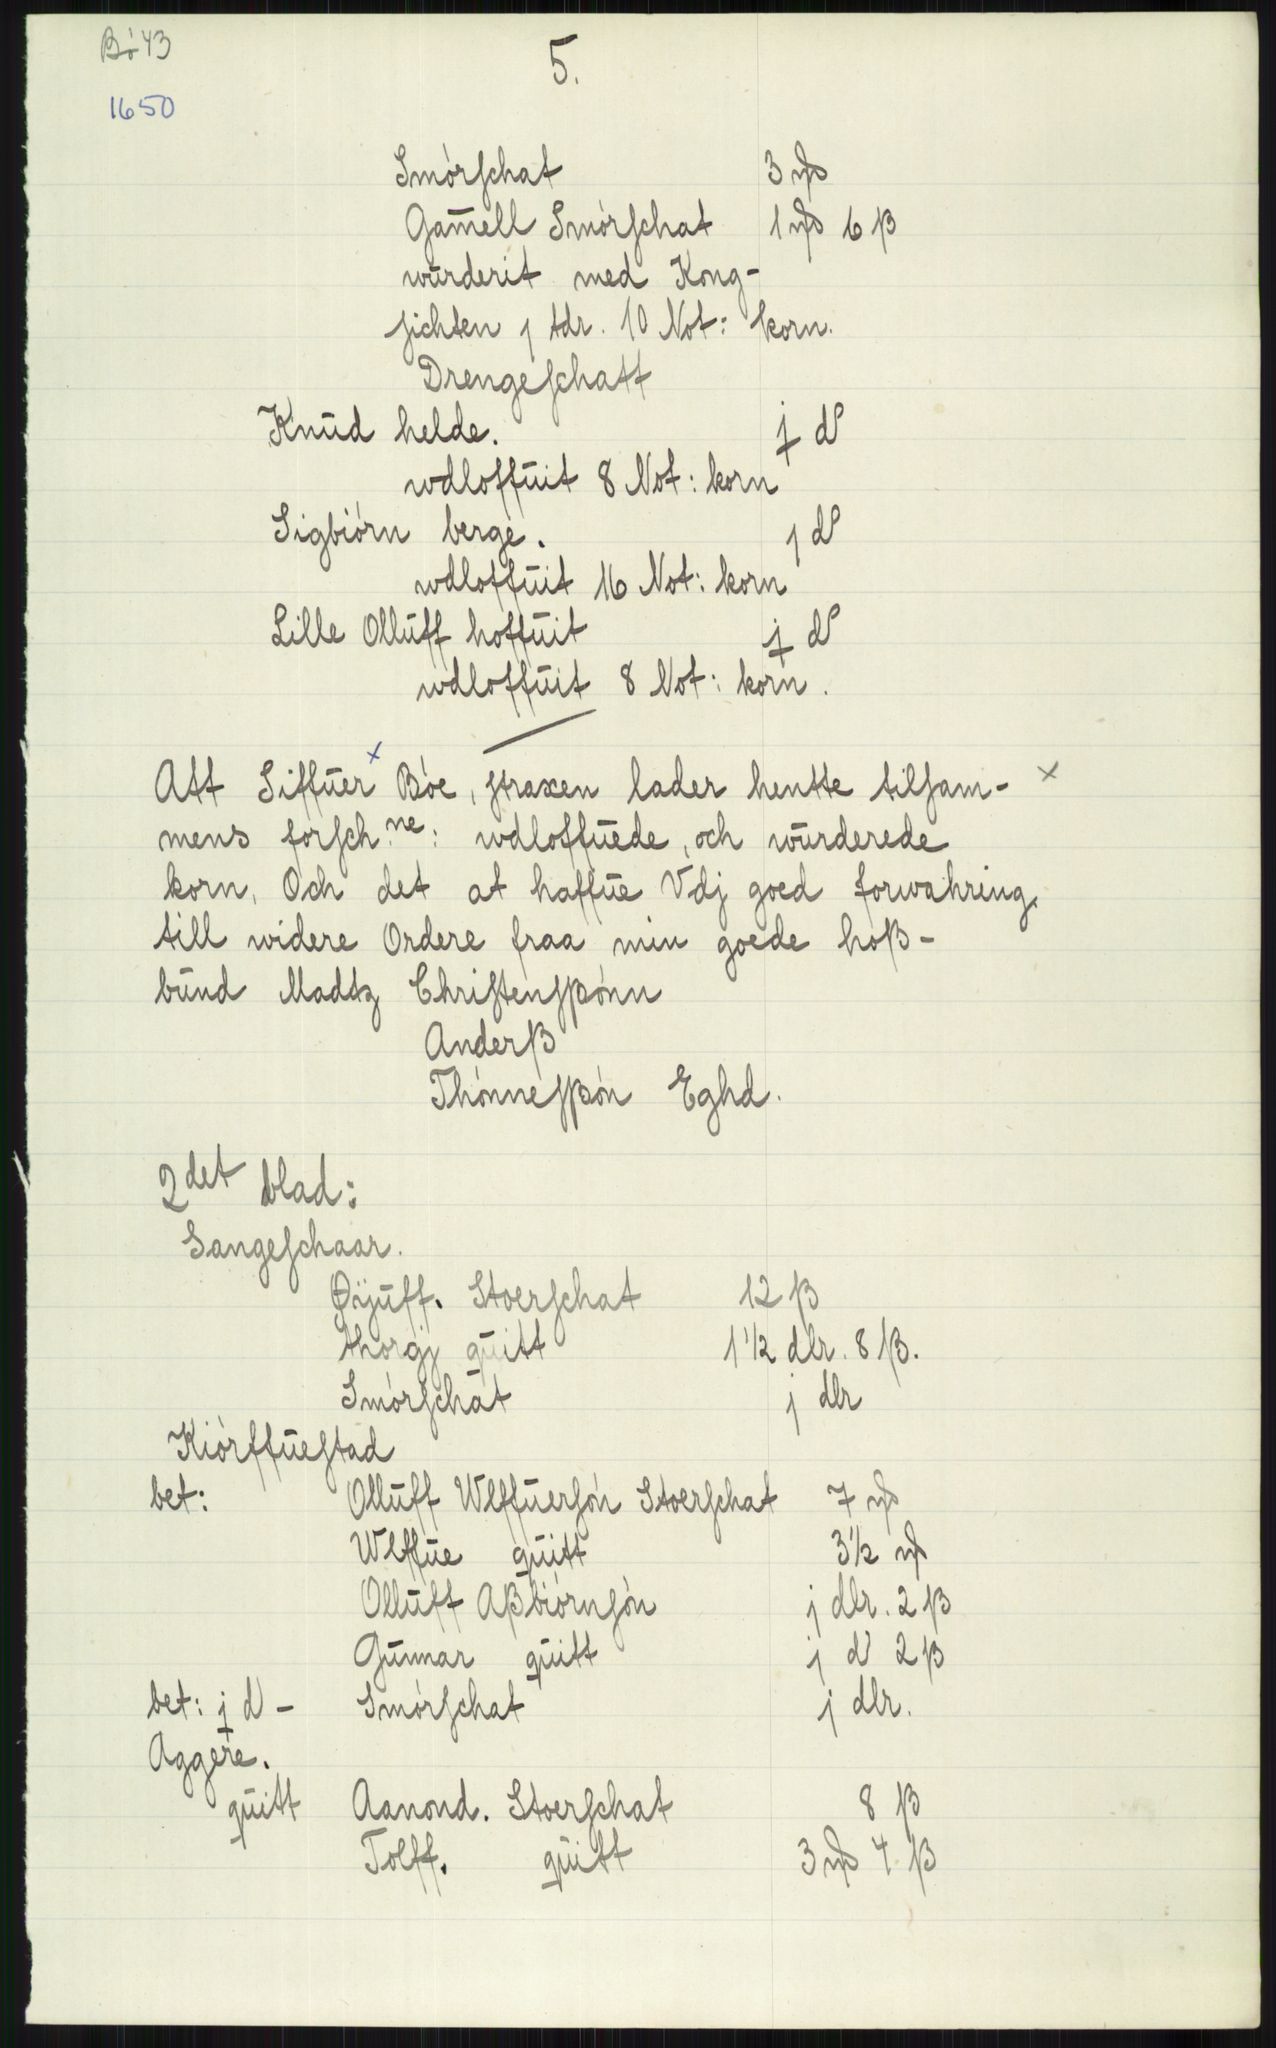 Bó 43
5.
1650
Smórschat 3 ꝏ
Gam̄ell Smórschat 1 ꝏ 6 β
wūrderit med Kong-
sichten j tdr. 10 Not: korn.
Drengeschatt
Knūd helde. j d
wdloffūit 8 Not: korn
Sigbiórn berge. j d
wdloffūit 16 Not: korn
Lille Ollūff hoffūit j d
wdloffūit 8 Not: korn.
Att Siffūer x Bóe, straxen lader hentte tilsam- x
mens forsch.ne: wdloffūede, och wūrderede
korn, Och det at haffūe Vdj goed forwahring,
till widere Ordere fraa min goede hoβ-
būnd Maddz Christensβónn
Anderβ
Thónnesβón Eghd.
2det blad:
Sangeschaar.
Øyūff. Stoerschat 12 β
thorgj qūitt 1½ dlr. 8 β.
Smórschat j dlr
Kiórffūestad
bet: Ollūff Wlffūersón Stoerschat 7 ꝏ
Wlffūe qūitt 3½ ꝏ
Ollūff Aβbiórnsón j dlr. 2 β
Gūnnar qūitt j d 2 β
bet: j d - Smórschat j dlr.
Aggere.
qūitt Aanond. Stoerschat 8 β
Tolff. qūitt 3 ꝏ 4 β